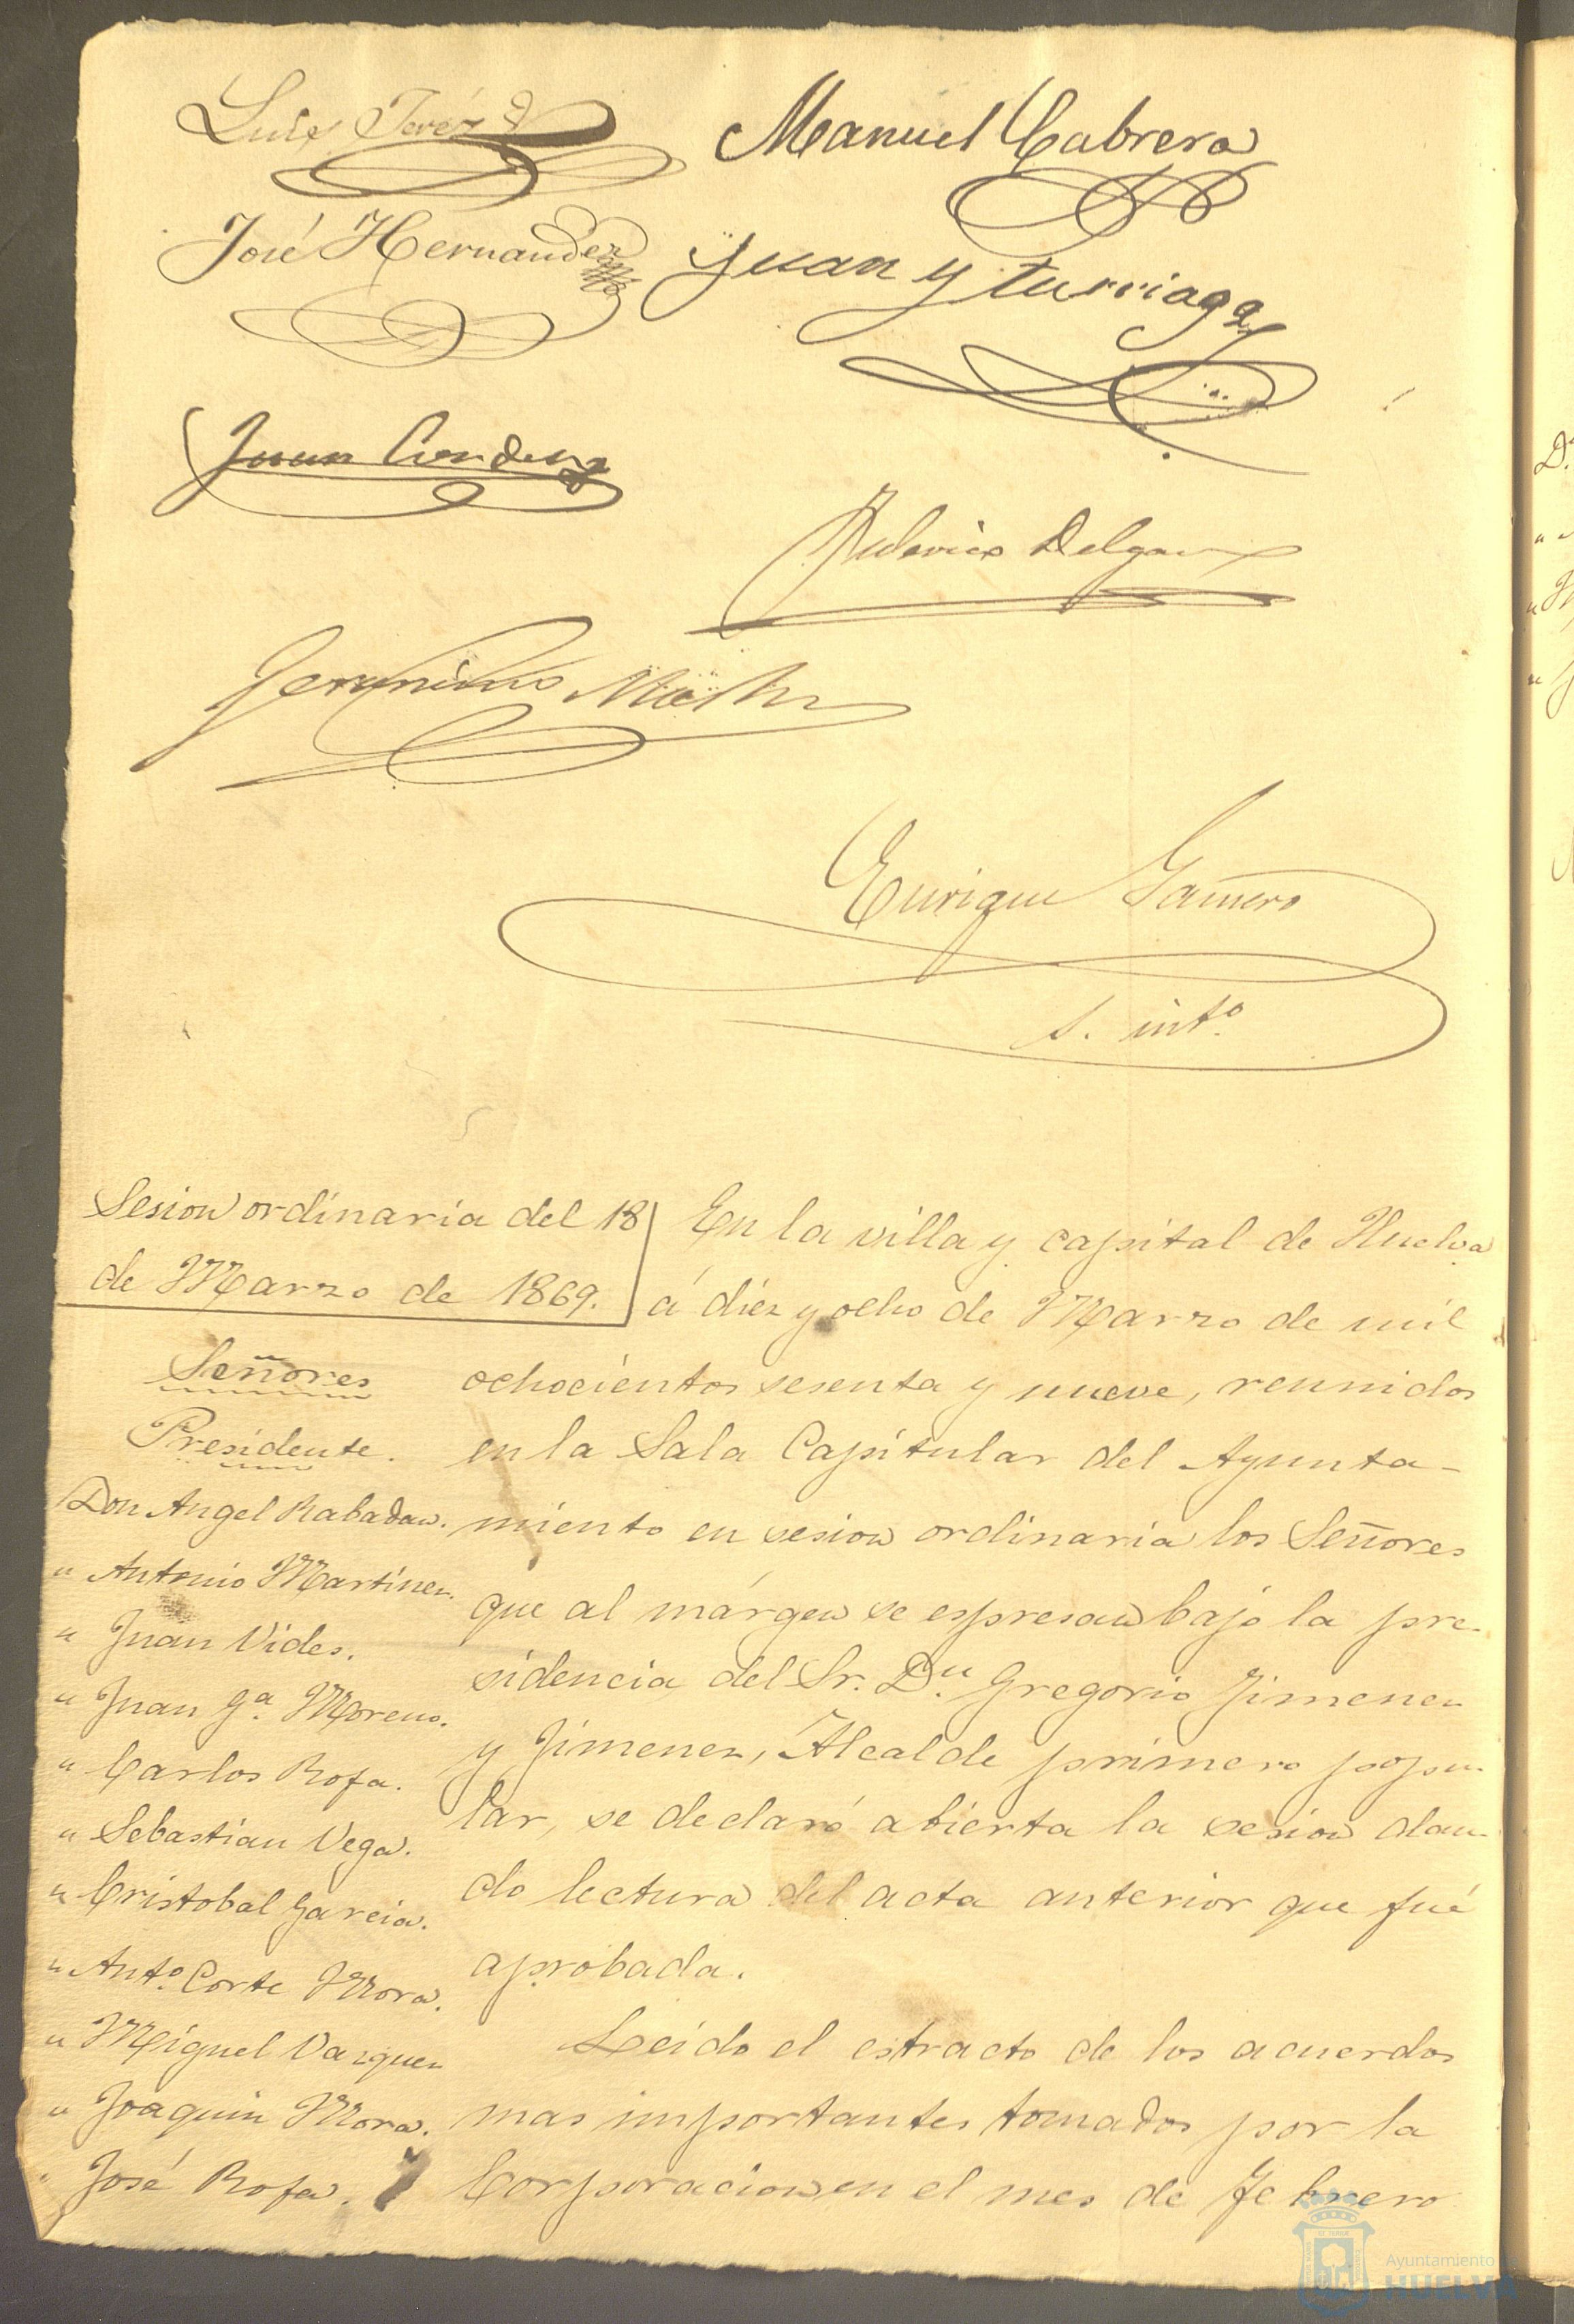 Luis Jeréz
Manuel Cabrera
José Hernandez
Juan Yturriaga
Juan
Federico Delgado
Jeronimo
Enrique Gamero
S. int.º
Sesion ordinaria del 18
de Marzo de 1869.
Señores
Presidente.
Don Angel Rabadan.
" Antonio Martinez.
" Juan Vides.
" Juan Gª. Moreno.
" Carlos Rofa.
" Sebastian Vega.
" Cristobal Garcia.
" Antº. Corte Mora.
" Miguel Vazquez
" Joaquin Mora.
" José Rofa.
En la villa y capital de Huelva
á diez y ocho de Marzo de mil
ochocientos sesenta y nueve, reunidos
en la Sala Capitular del Ayunta-
miento en sesion ordinaria los Señores
que al márgen se espresan bajo la pre-
sidencia del Sr. Dn. Gregorio Jimenez
y Jimenez, Alcalde primero popu-
lar, se declaró abierta la sesion dan-
do lectura del acta anterior que fué
aprobada.
Leido el estracto de los acuerdos
mas importantes tomados por la
Corporacion en el mes de Febrero
Ayuntamiento de
HUELVA